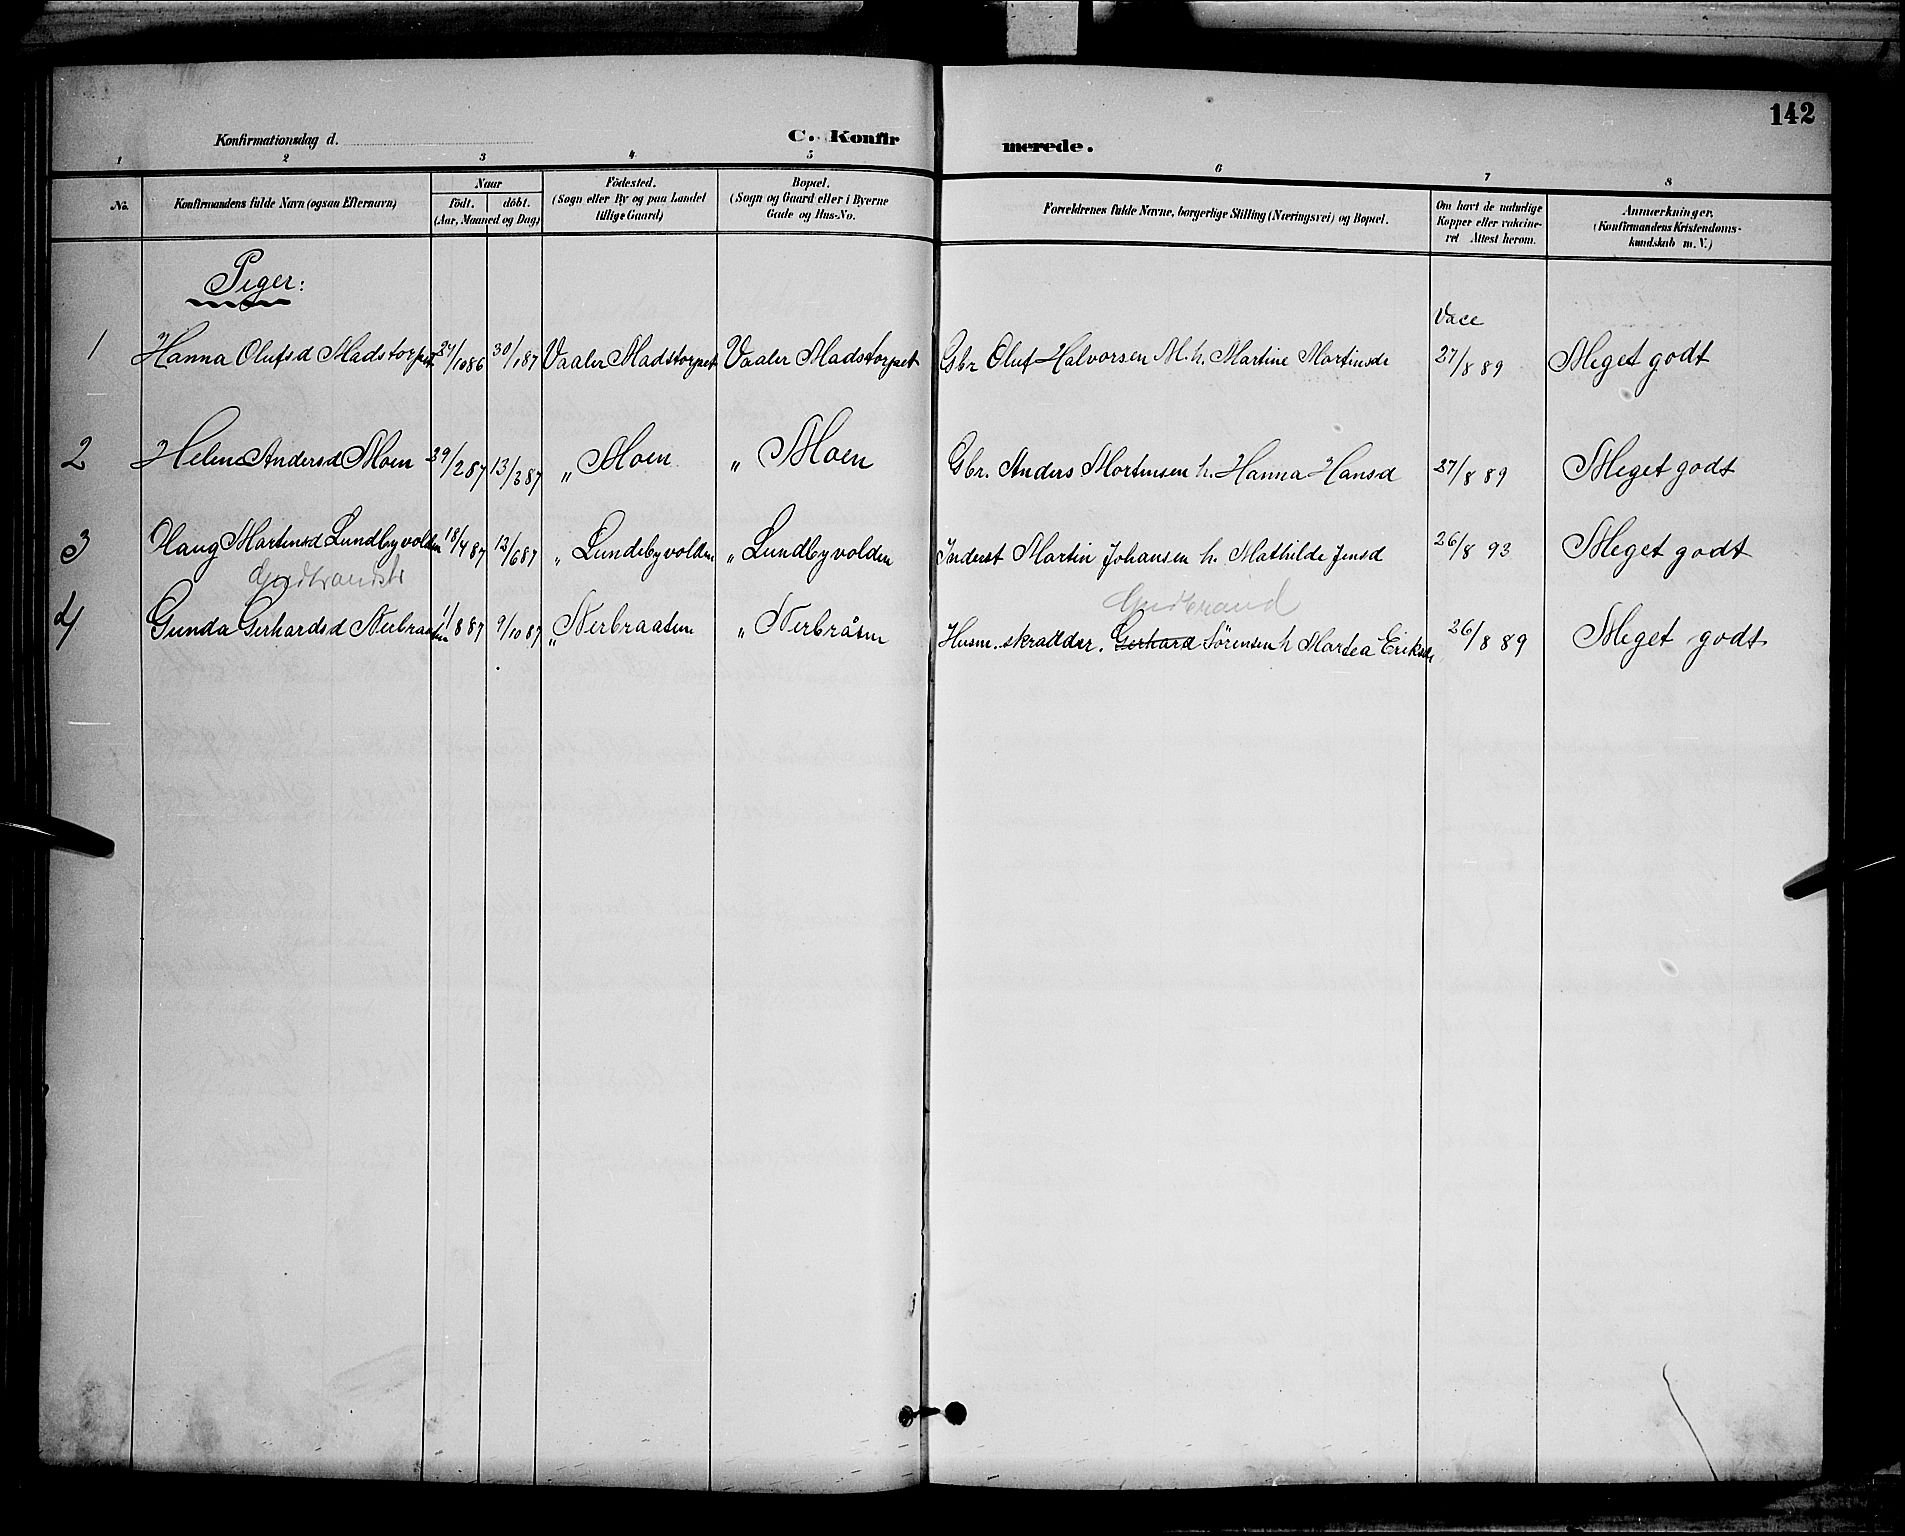 142
Konfirmationsdag d.
C. Konfirmerede.
1 2 3 4 5 6 7 8
No.
Konfirmandens fulde Navn (ogsaa Efternavn)
Naar
födt. döbt.
(Aar, Maaned og Dag)
Födested.
(Sogn eller By og paa Landet
tillige Gaard)
Bopæl.
(Sogn og Gaard eller i Byerne
Gade og Hus-No.
Forældrenes fulde Navne, borgerlige Stilling (Næringsvei) og Bopæl.
Om havt de naturlige
Kopper eller vakcine-
ret Attest herom.
Anmærkninger.
(Konfirmandens Kristendoms-
kundskab m. V.)
Piger:
Vacc
1 Hanna Olufsd Madstorpet 24/10 86 30/1 87 Vaaler Madstorpet Vaaler Madstorpet Gbr Oluf Halvorsen M. h. Martine Martinsdr 27/8 89 Meget godt
2 Helene Andersd Moen 29/2 87 13/3 87 " Moen " Moen Gbr. Anders Mortensen h. Hanna Hansd 27/8 89 Meget godt
3 Olaug Martinsd Lundbyvolden 18/4 87 12/6 87 " Lundebyvolden " Lundbyvolden Inderst Martin Johansen h. Mathilde Jensd 26/8 93 Meget godt
Gudbrandsd Gudbrand
4 Gunda Gerhardsd Nerbraaten 11/8 87 9/10 87 " Nerbraaten " Nerbråten Husm. skrædder. Gerhard Sörensen h Martea Eriksd 26/8 89 Meget godt